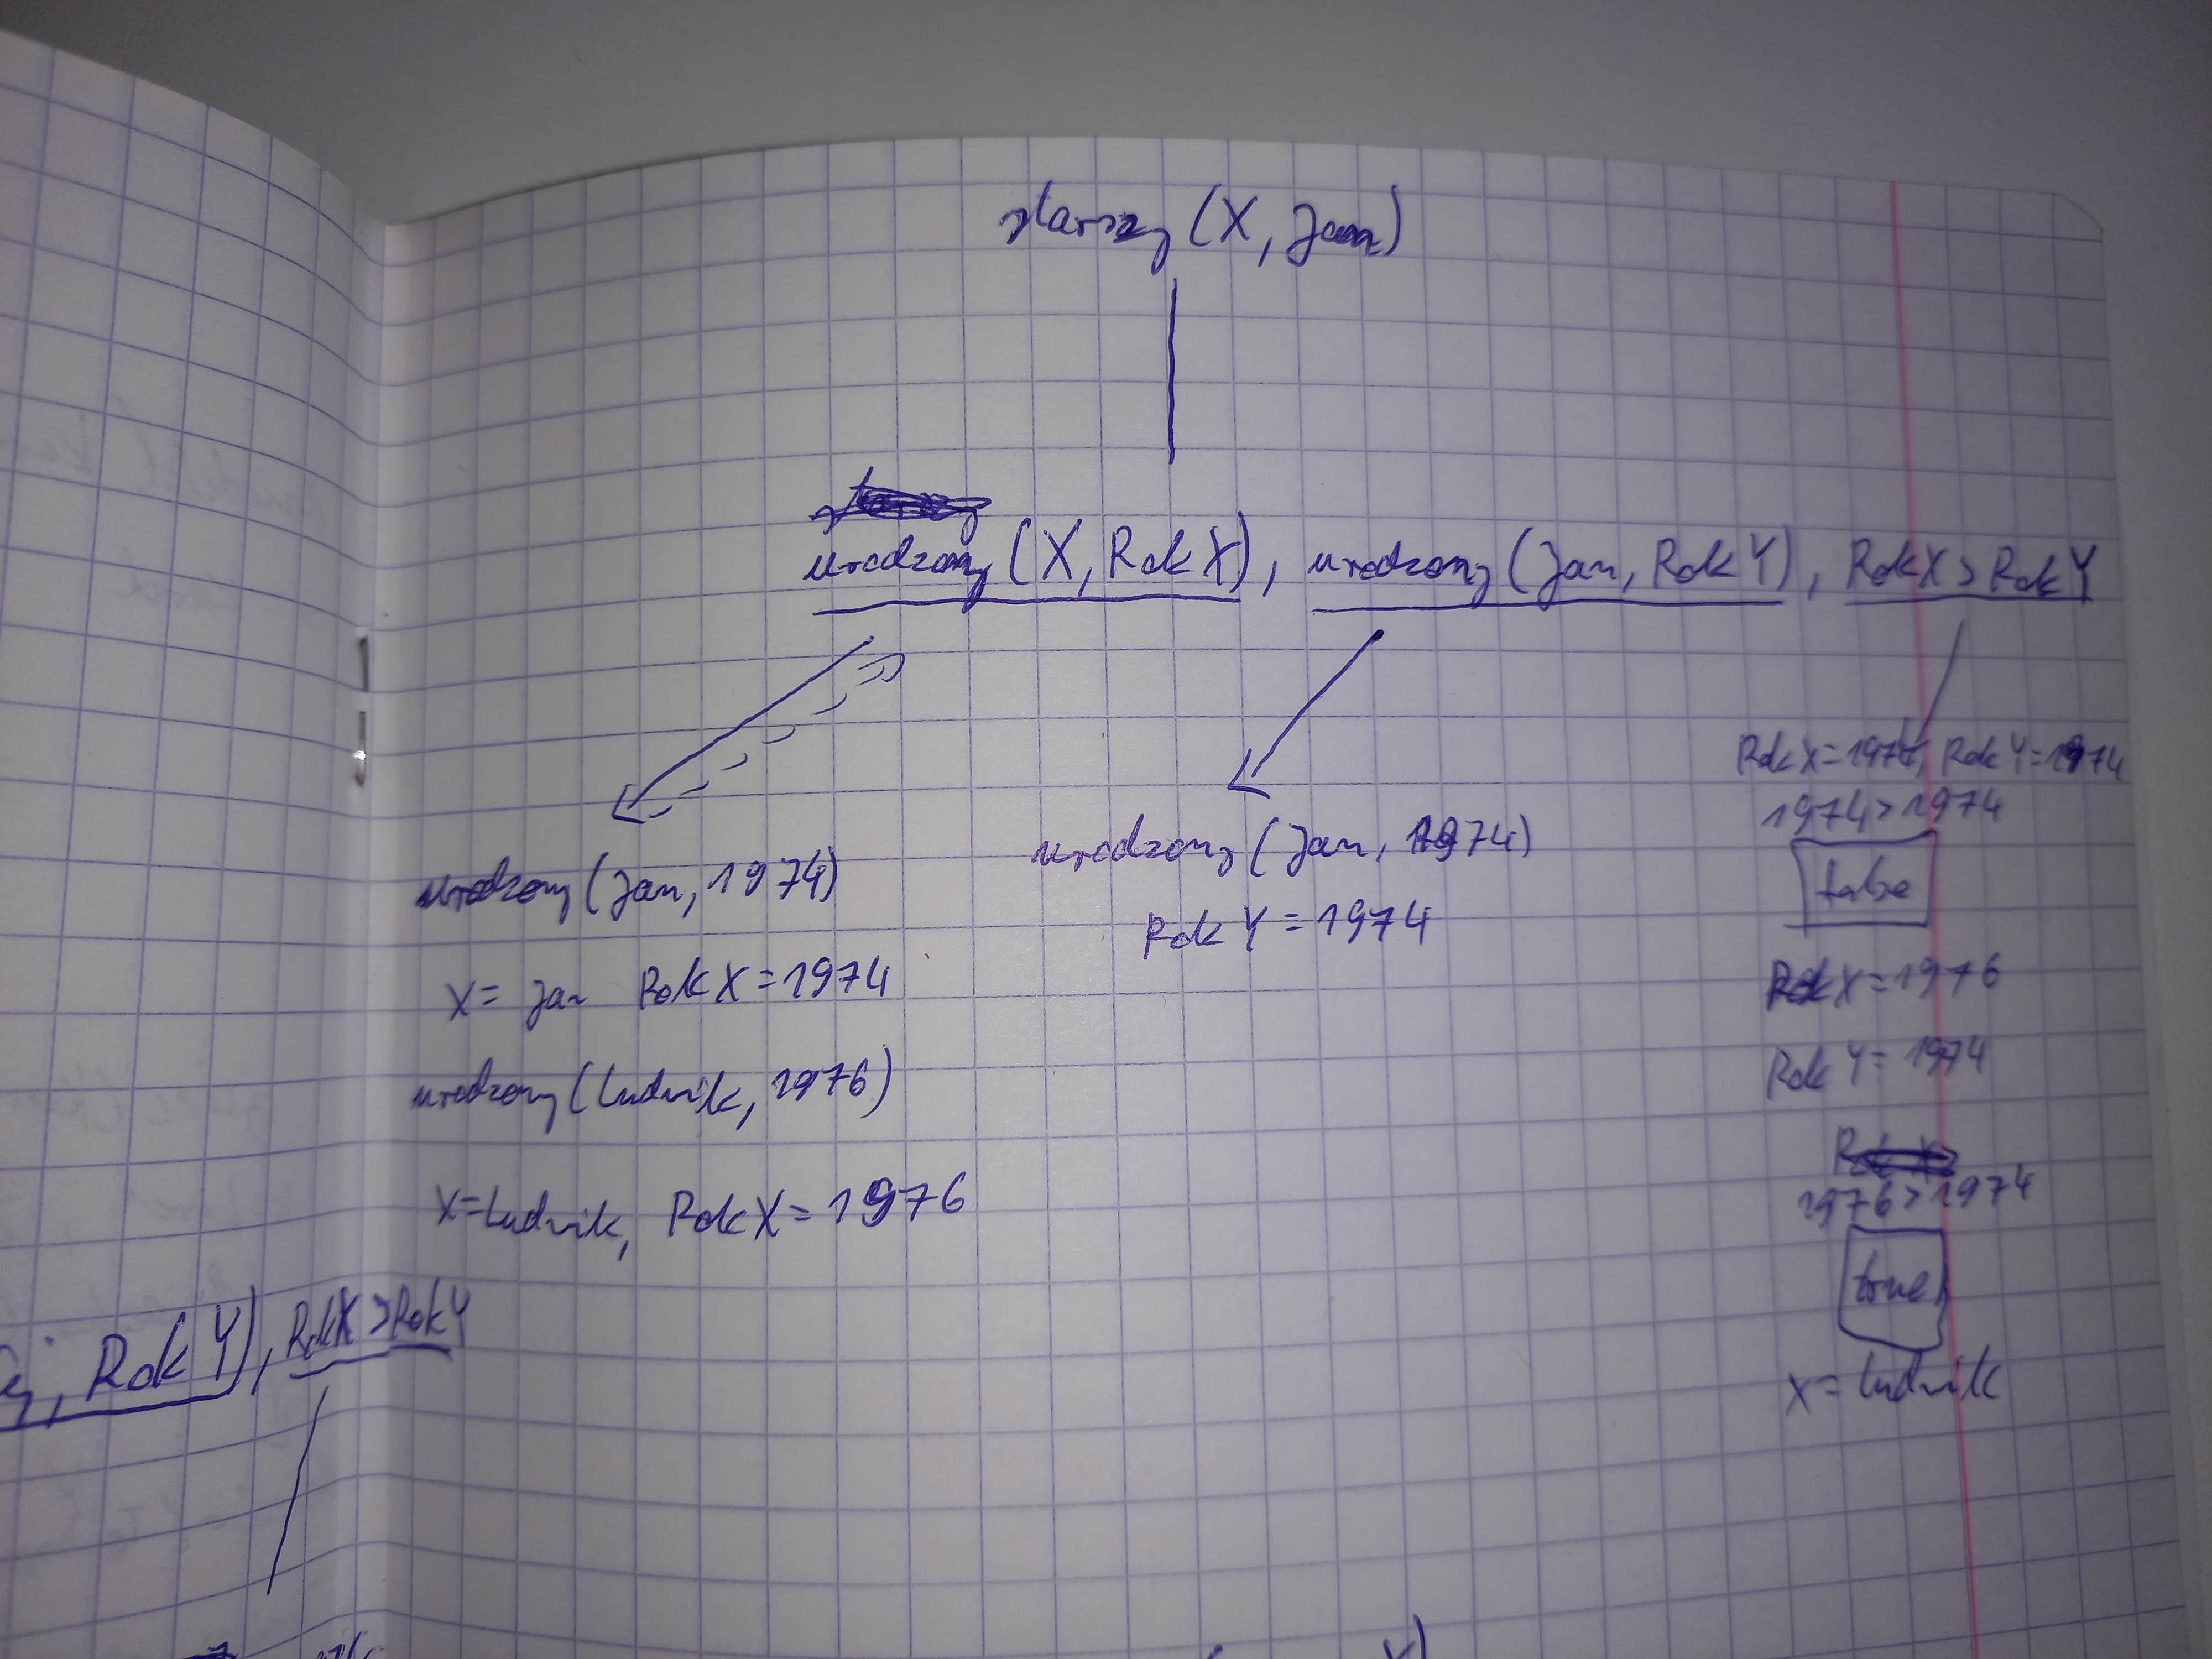 starszy (X, jan)
urodzony (X, RokX), urodzony (jan, RokY), RokX > RokY
urodzony (jan, 1974)
X = jan RokX = 1974
urodzony (ludwik, 1976)
X = ludwik, RokX = 1976
urodzony (jan, 1974)
RokY = 1974
RokX = 1974, RokY = 1974
1974 > 1974
false
RokX = 1976
RokY = 1974
1976 > 1974
true
X = ludwik
, RokY), RokX > RokY